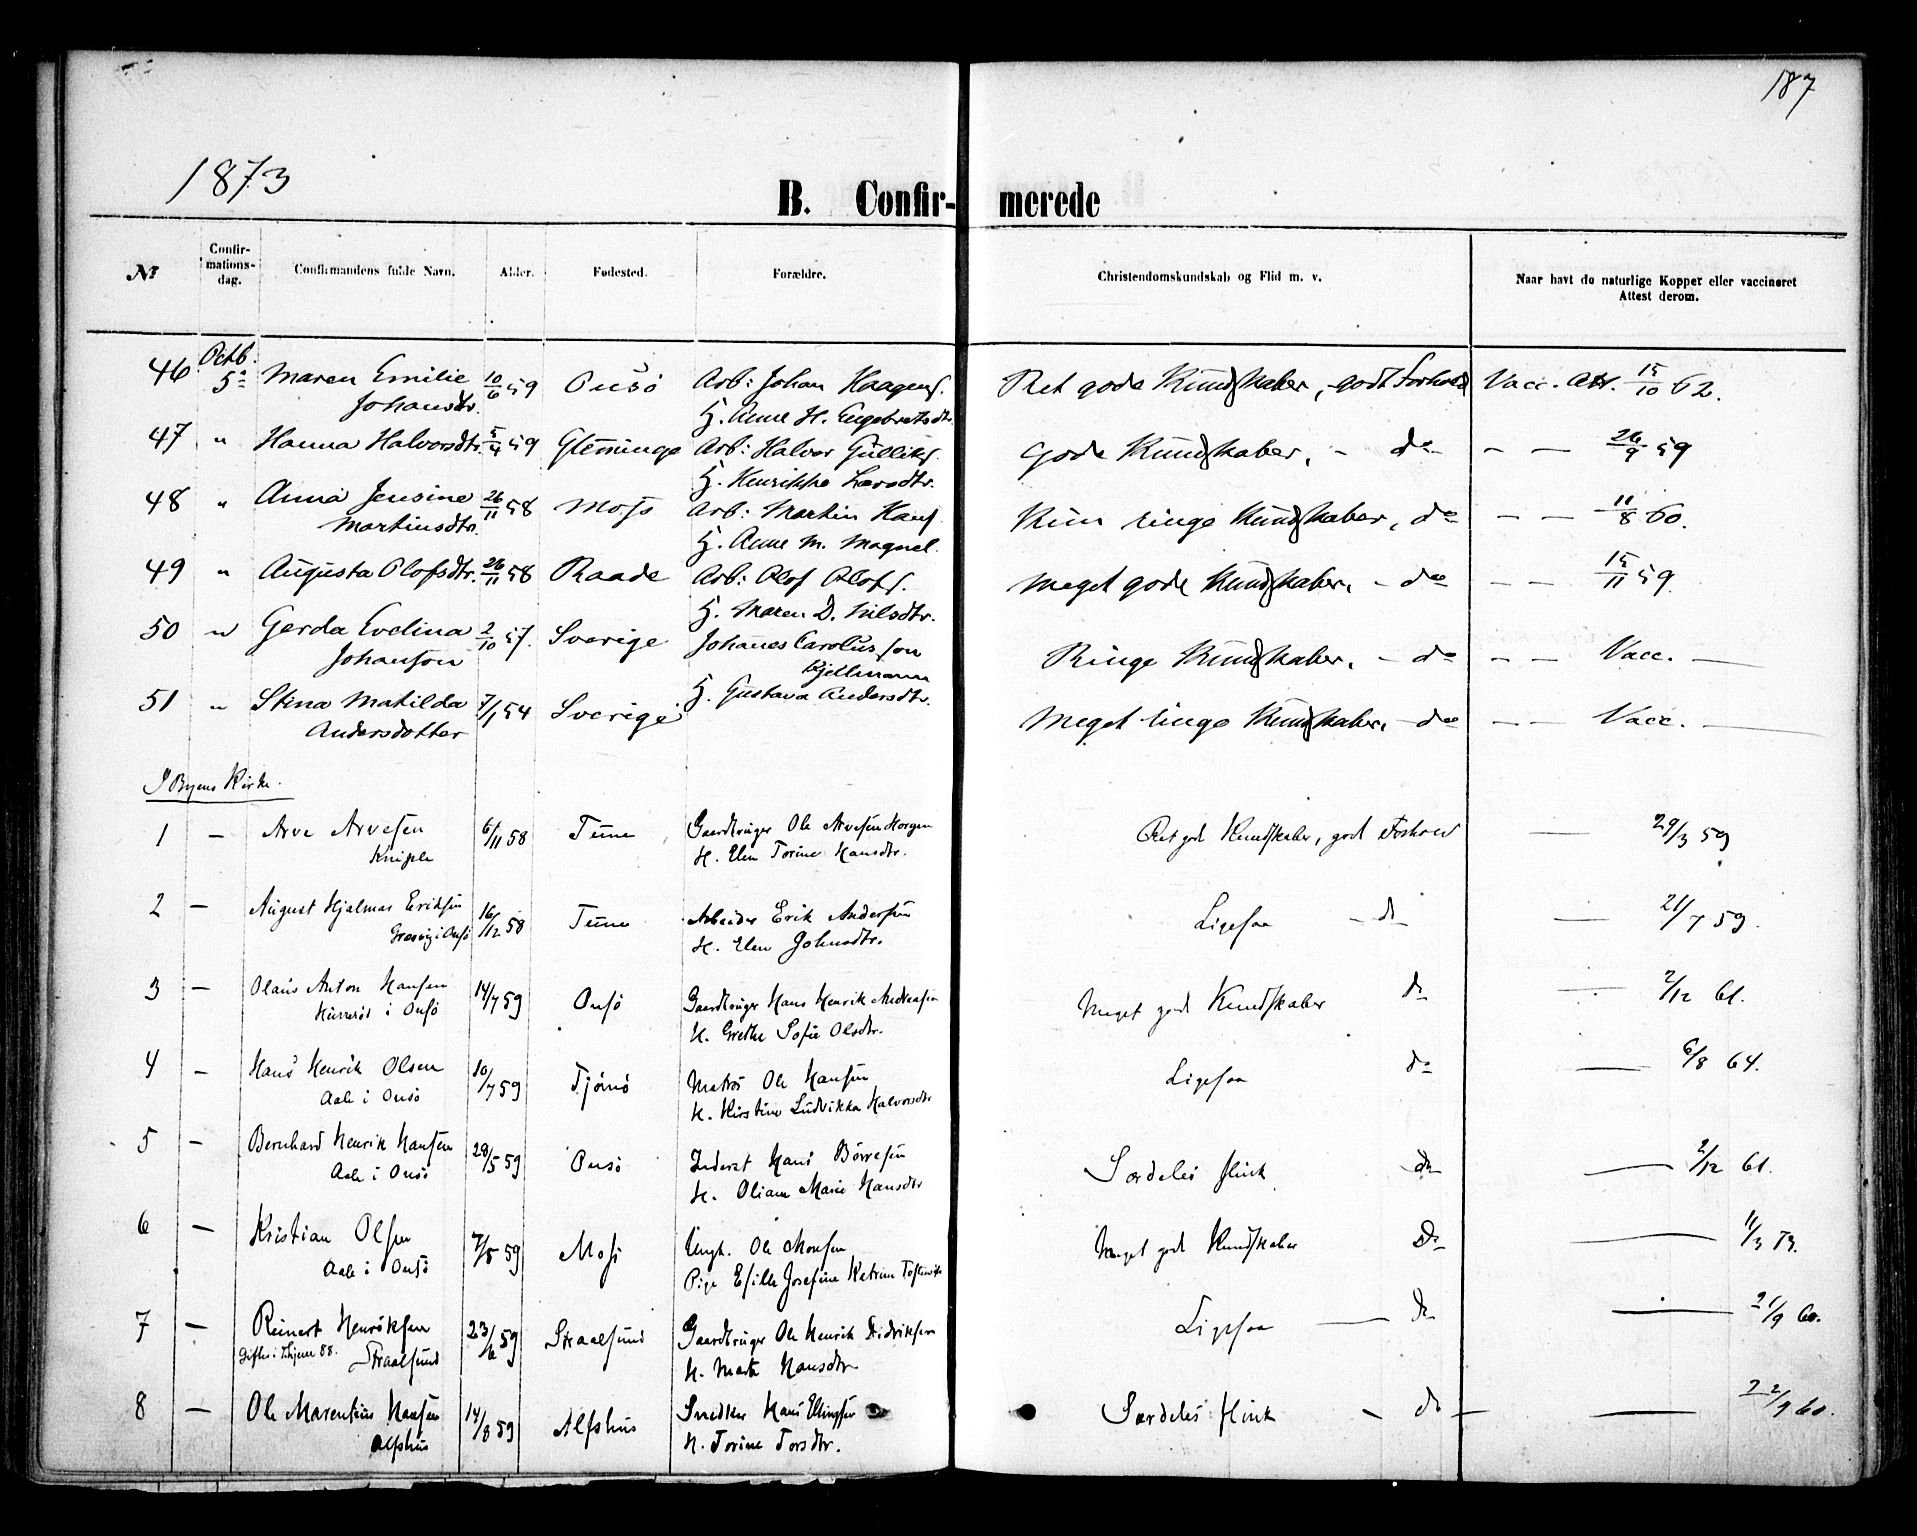 187
1873
B. Confirmerede
№
Confirmations-dag.
Confirmandens fulde Navn.
Alder.
Fødested.
Forældre.
Christendomskundskab og Flid m. v.
Naar havt de naturlige Kopper eller vaccineret
Attest derom.
46 Octb. 5te Maren Emilie 10/6 59 Onsø Arb: Johan Haagens. Ret gode Kundskaber, godt Forhold Vacc. Att. 15/10 62.
Johansdtr. H. Anne H. Engebretsdtr.
47 " Hanna Halvorsdtr. 5/4 59 Glemminge Arb: Halvor Gulliks. gode Kundskaber, - do - — 26/9 59
H. Henrikke Larsdtr.
48 " Anna Jensine 26/11 58 Moss Arb: Martin Hans. Kun ringe Kundskaber, do - — 11/8 60.
Martinsdtr. H. Anne M. Magnel.
49 " Augusta Olofsdtr. 26/11 58 Raade Arb: Olof Olofs. meget gode Kundskaber, - do - — 15/11 59.
H. Maren D. Nilsdtr.
50 " Gerda Evelina 2/10 57. Sverige Johanes Carolusson Ringe Kundskaber, - do - — Vacc. —
Johanson Kjellmann
H. Gustava Andersdtr.
51 " Stina Matilda 7/1 54 Sverige Meget ringe Kundskaber, - do - — Vacc. —
Andersdotter
I Byens Kirke.
1 — Arve Arvesen 6/11 58 Tune Gaardbruger Ole Arvesen Horgen Ret gode Kundskaber, god Forhold — 29/3 59
Kniple H. Elen Torine Hansdtr.
2 — August Hjalmar Eriksen 16/12 58 Tune Arbeider Erik Andersen Ligesaa - do — 21/7 59.
Gresvig i Onsø H. Elen Johnsdtr.
3 — Olaus Anton Hansen 14/7 59 Onsø Gaardbruger Hans Henrik Andreasen Meget gode Kundskaber do — 2/12 61.
i Onsø H. Grethe Sofie Olsdtr.
4 — Hans Henrik Olsen 10/7 59 Tjømø Matros Ole Hansen Ligesaa do — 6/8 64.
Aale i Onsø H. Kirstine Ludvikka Halvorsdtr
5 — Bernhard Henrik Hansen 28/5 59 Onsø Inderst Hans Børresen Særdeles flink do — 2/12 61.
Aale i Onsø H. Oliane Marie Hansdtr
6 — Kristian Olsen 7/5 59 Moss Ungk. Ole Monsen Meget gode Kundskaber Do — 11/3 73.
Aale i Onsø Pige Josefine Katrine
7 — Reinert Henriksen 23/6 59 Straalsund Gaardbruger Ole Henrik Didriksen Ligesaa — do — 21/9 60.
88. Straalsund H. Marte Hansdtr
8 — Ole Marentius Hansen 14/8 59 Alfshus Snedker Hans Ellingsen Særdeles flink - do — — 22/9 60.
Alfshus H. Torine Torsdtr.